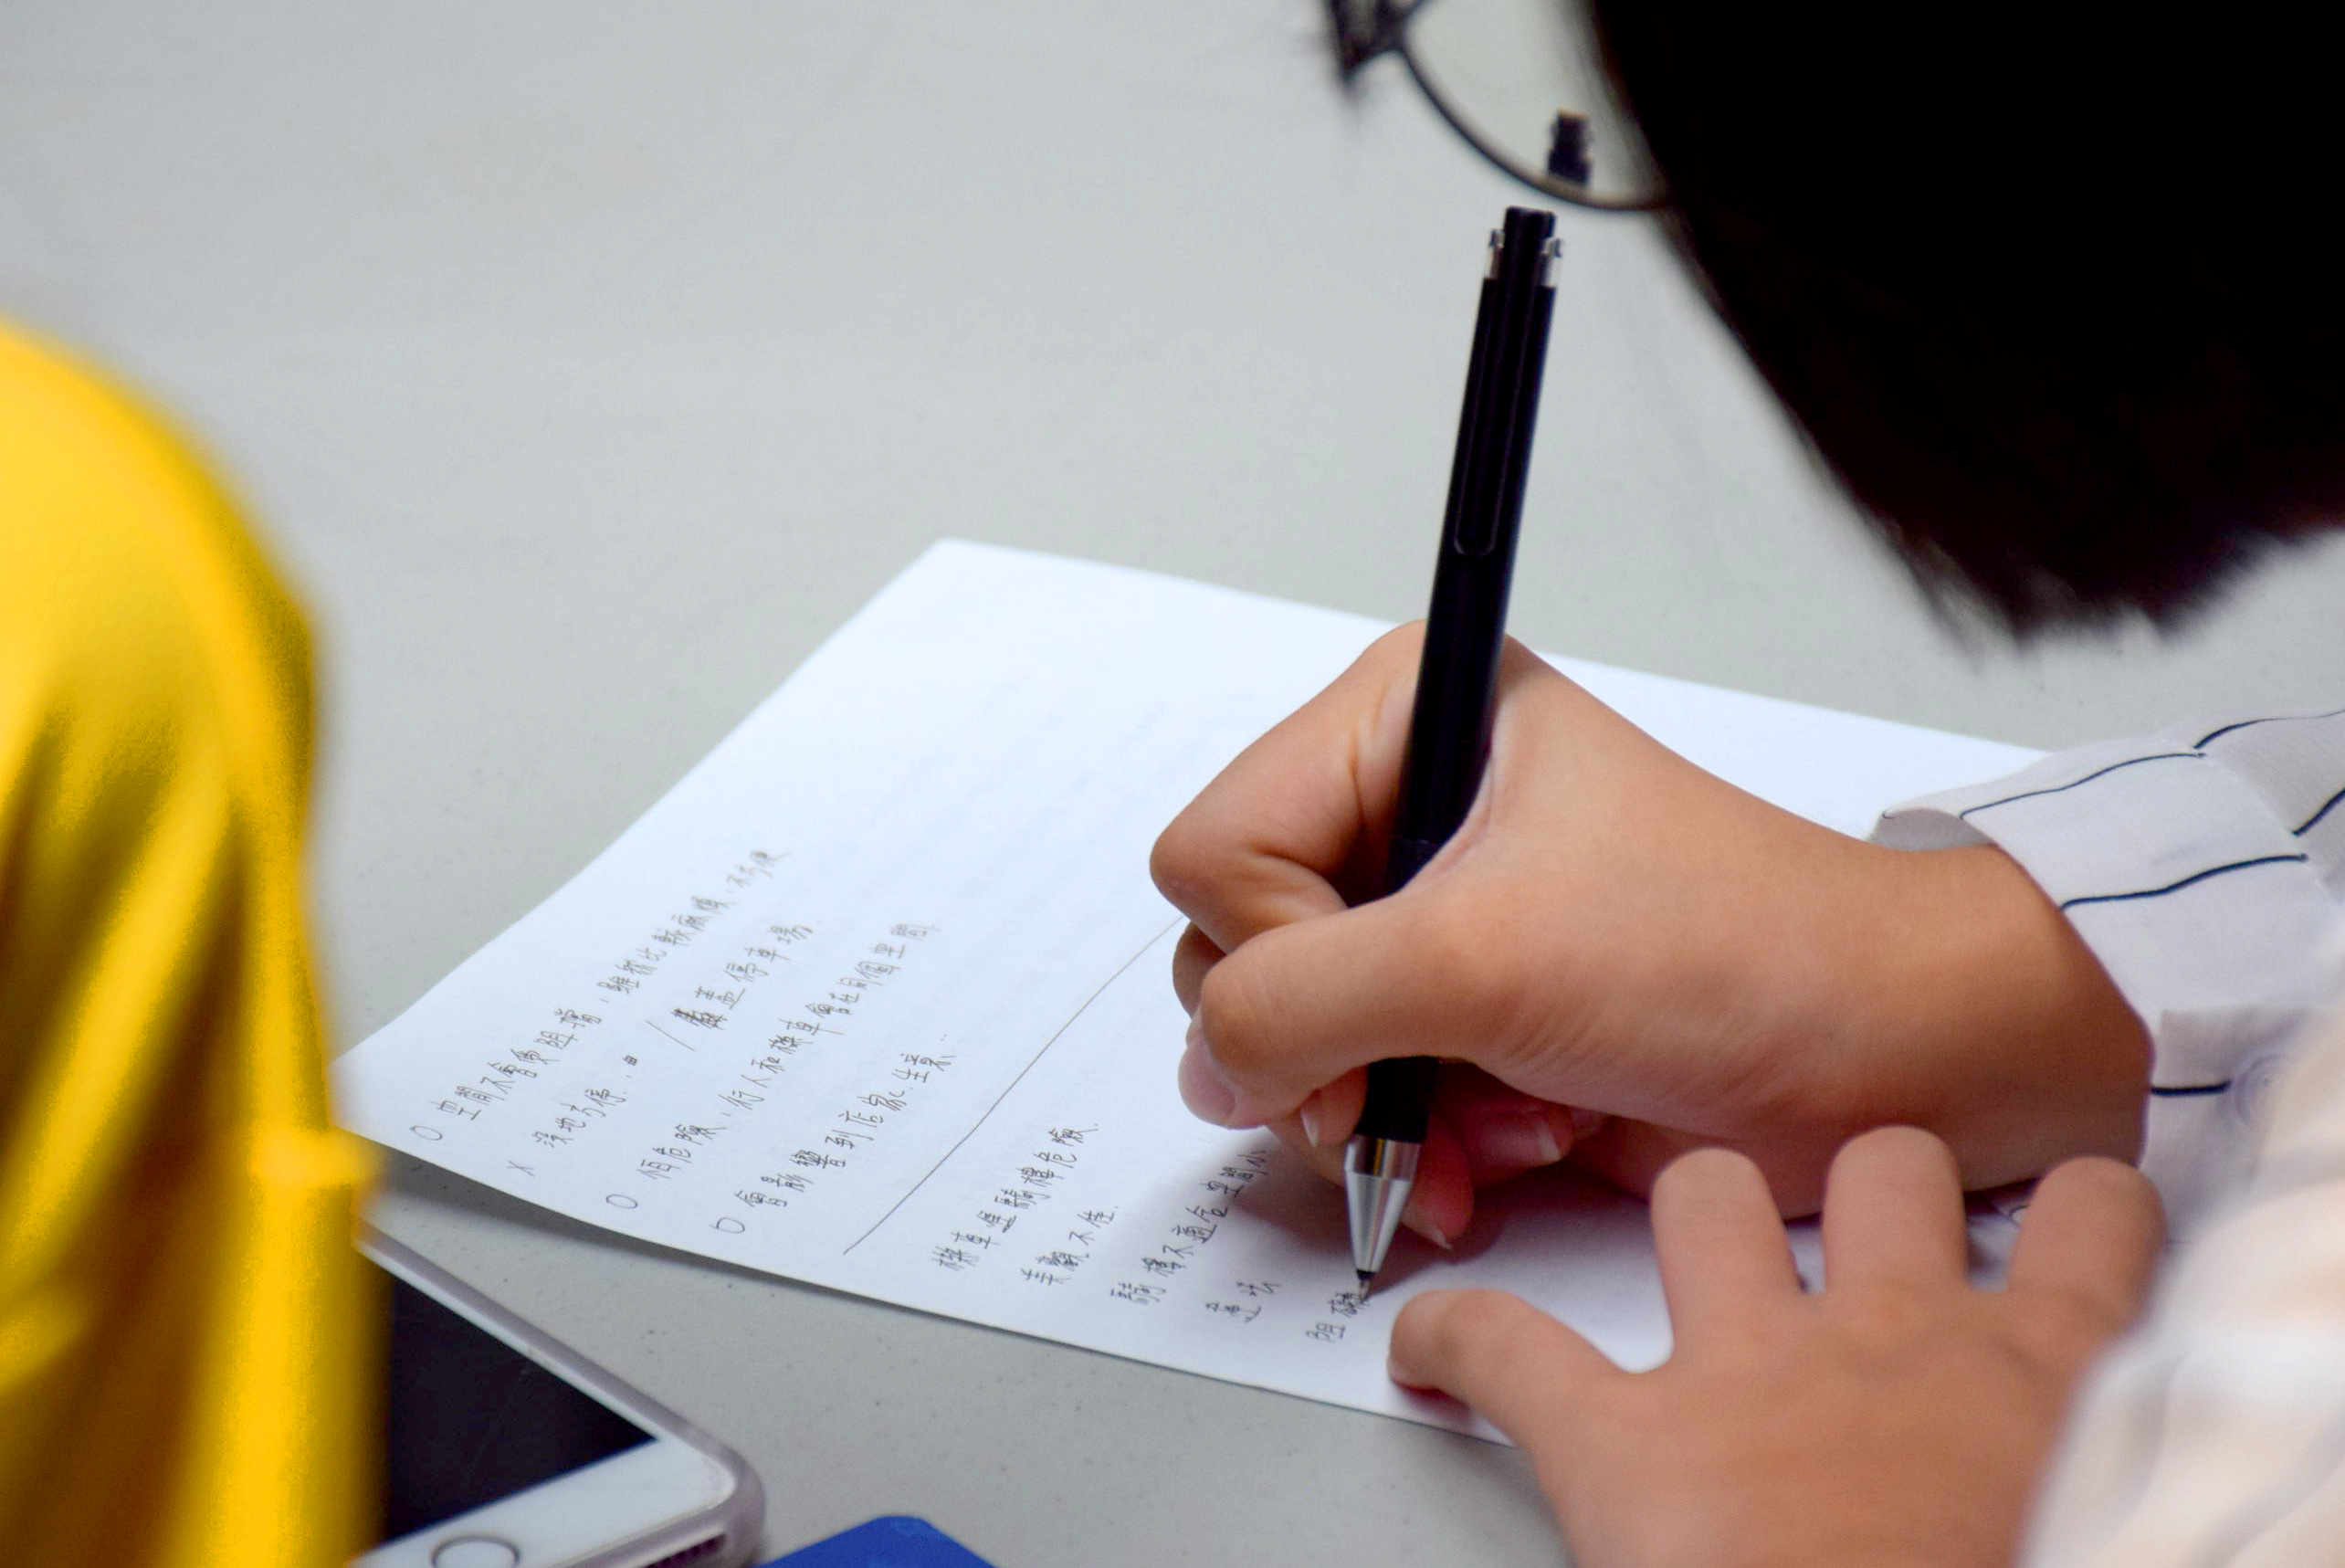 O 空間不會像阻擋，雖然比較麻煩，不方便
X 沒地方停. / 蓋停車場.
O 怕危險，行人和機車會在同個空間
O 會影響到店家生意..
機車堡騎樓危險.
美觀不佳.
騎樓不適合空間小
違法
阻礙